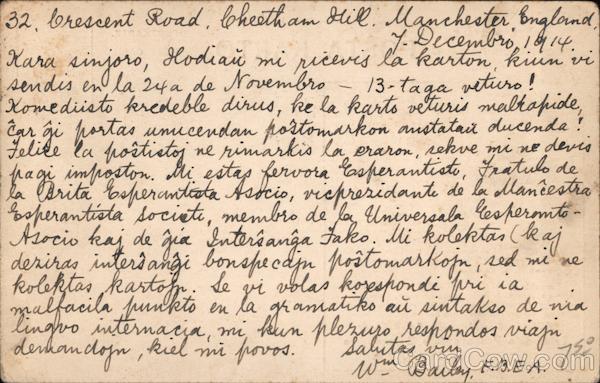 32, Crescent Road, Cheetham Hill, Manchester, England,
7. Decembro, 1914.
Kara sinjoro, Hodiaŭ mi ricevis la karton, kiun vi
sendis en la 24a de Novembro – 13-taga veturo!
Komediisto kredeble dirus, ke la karto veturis malrapide,
ĉar ĝi portas unucendan poŝtomarkon anstataŭ ducenda!
Feliĉe la poŝtistoj ne rimarkis la eraron, sekve mi ne devis
pagi imposton. Mi estas fervora Esperantisto, Fratulo de
la Brita Esperantista Asocio, vicprezidanto de la Manĉestra
Esperantista Societo, membro de la Universala Esperanto-
Asocio kaj de ĝia Interŝanĝa Fako. Mi kolektas (kaj
deziras interŝanĝi bonspecajn poŝtmarkojn, sed mi ne
kolektas kartojn. Se vi volas korespondi pri ia
malfacila punkto en la gramatiko aŭ sintakso de nia
lingvo internacia, mi kun plezuro respondos viajn
demandojn, kiel mi povos. Salutas vin
Wm. Bailey, F.B.E.A.
CardCow.com